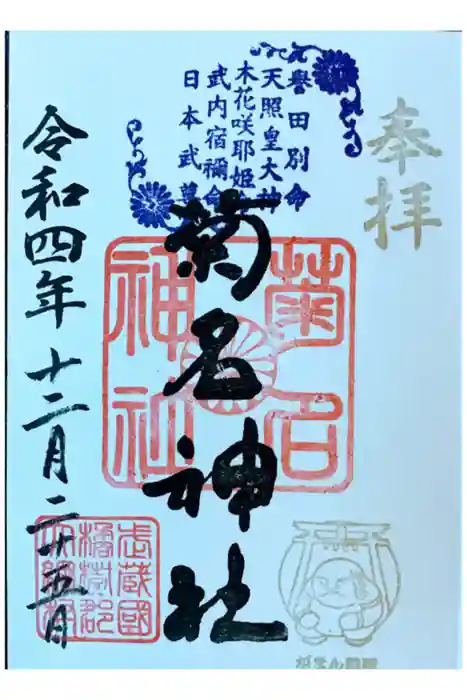 奉拝
譽田別命
天照皇大神
木花咲耶姫
武内宿禰命
日本武尊
菊名神社
菊名
神社
令和四年十二月二十五日
武蔵國
橘樹郡
大綱村
がまん